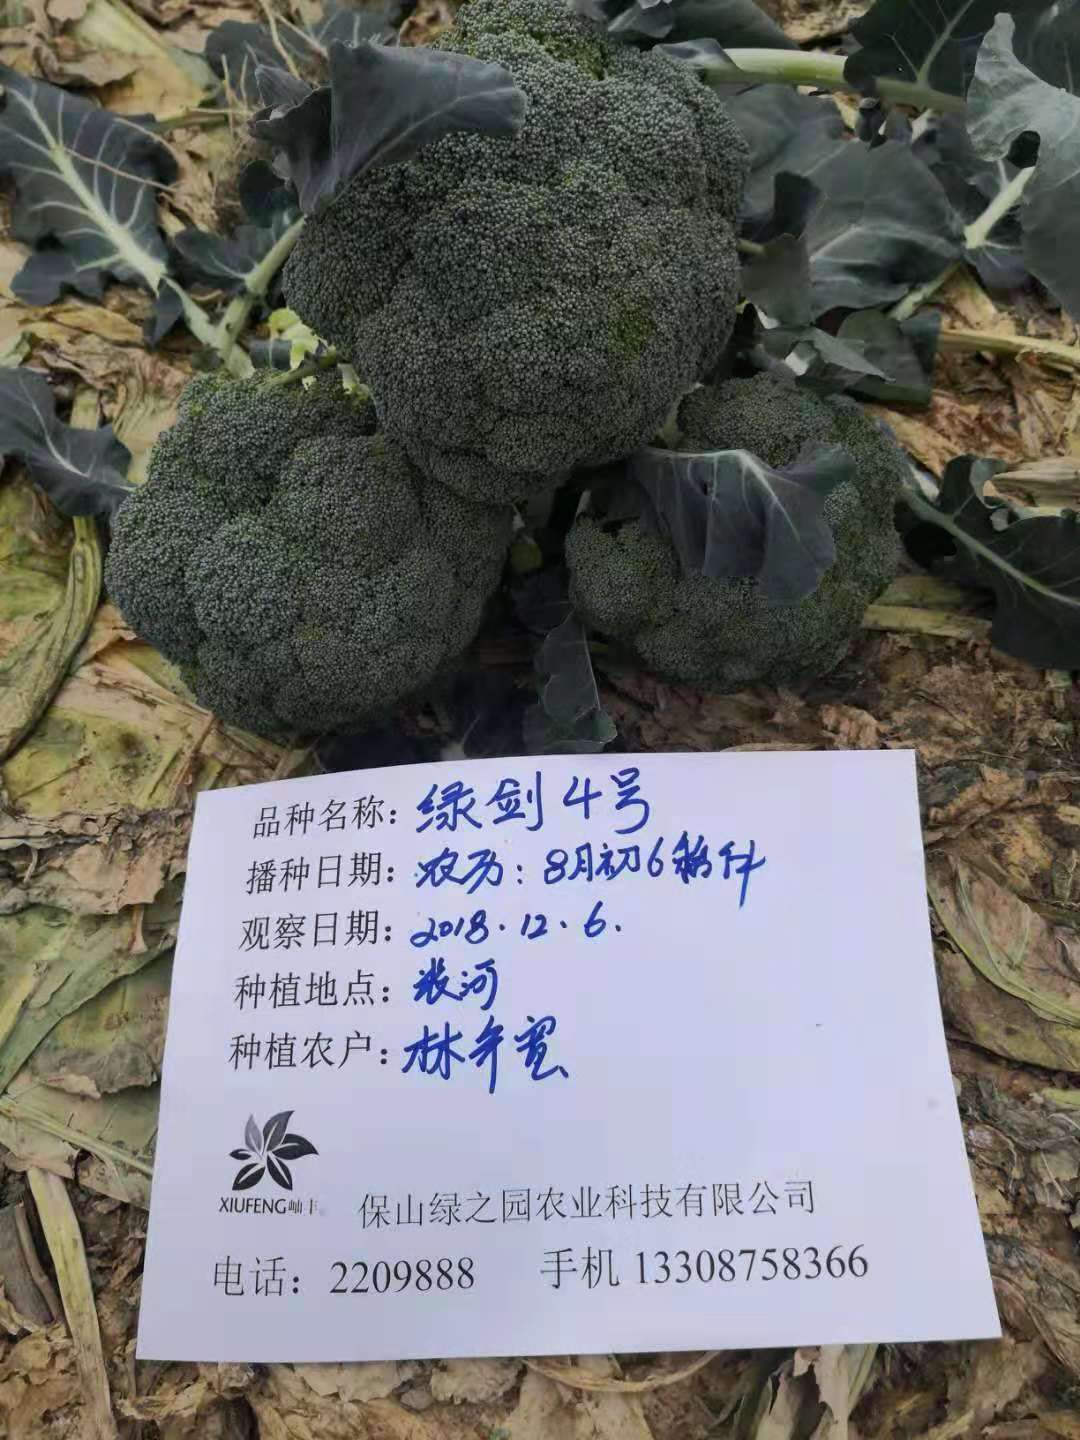 品种名称：绿剑4号
播种日期：农历：8月初6移栽
观察日期：2018.12.6.
种植地点：张河
种植农户：林年宽
XIUFENG岫丰
保山绿之园农业科技有限公司
电话：2209888 手机 13308758366